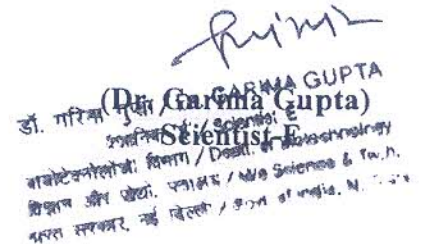 (Dr. Garima Gupta)
Scientist-E
डॉ. गरिमा गुप्ता / Dr. GARIMA GUPTA
वैज्ञानिक ई / Scientist E
बायोटेक्नोलॉजी विभाग / Deptt. of Biotechnology
विज्ञान और प्रौद्यो. मंत्रालय / M/o Science & Tech.
भारत सरकार, नई दिल्ली / Govt. of India, N.